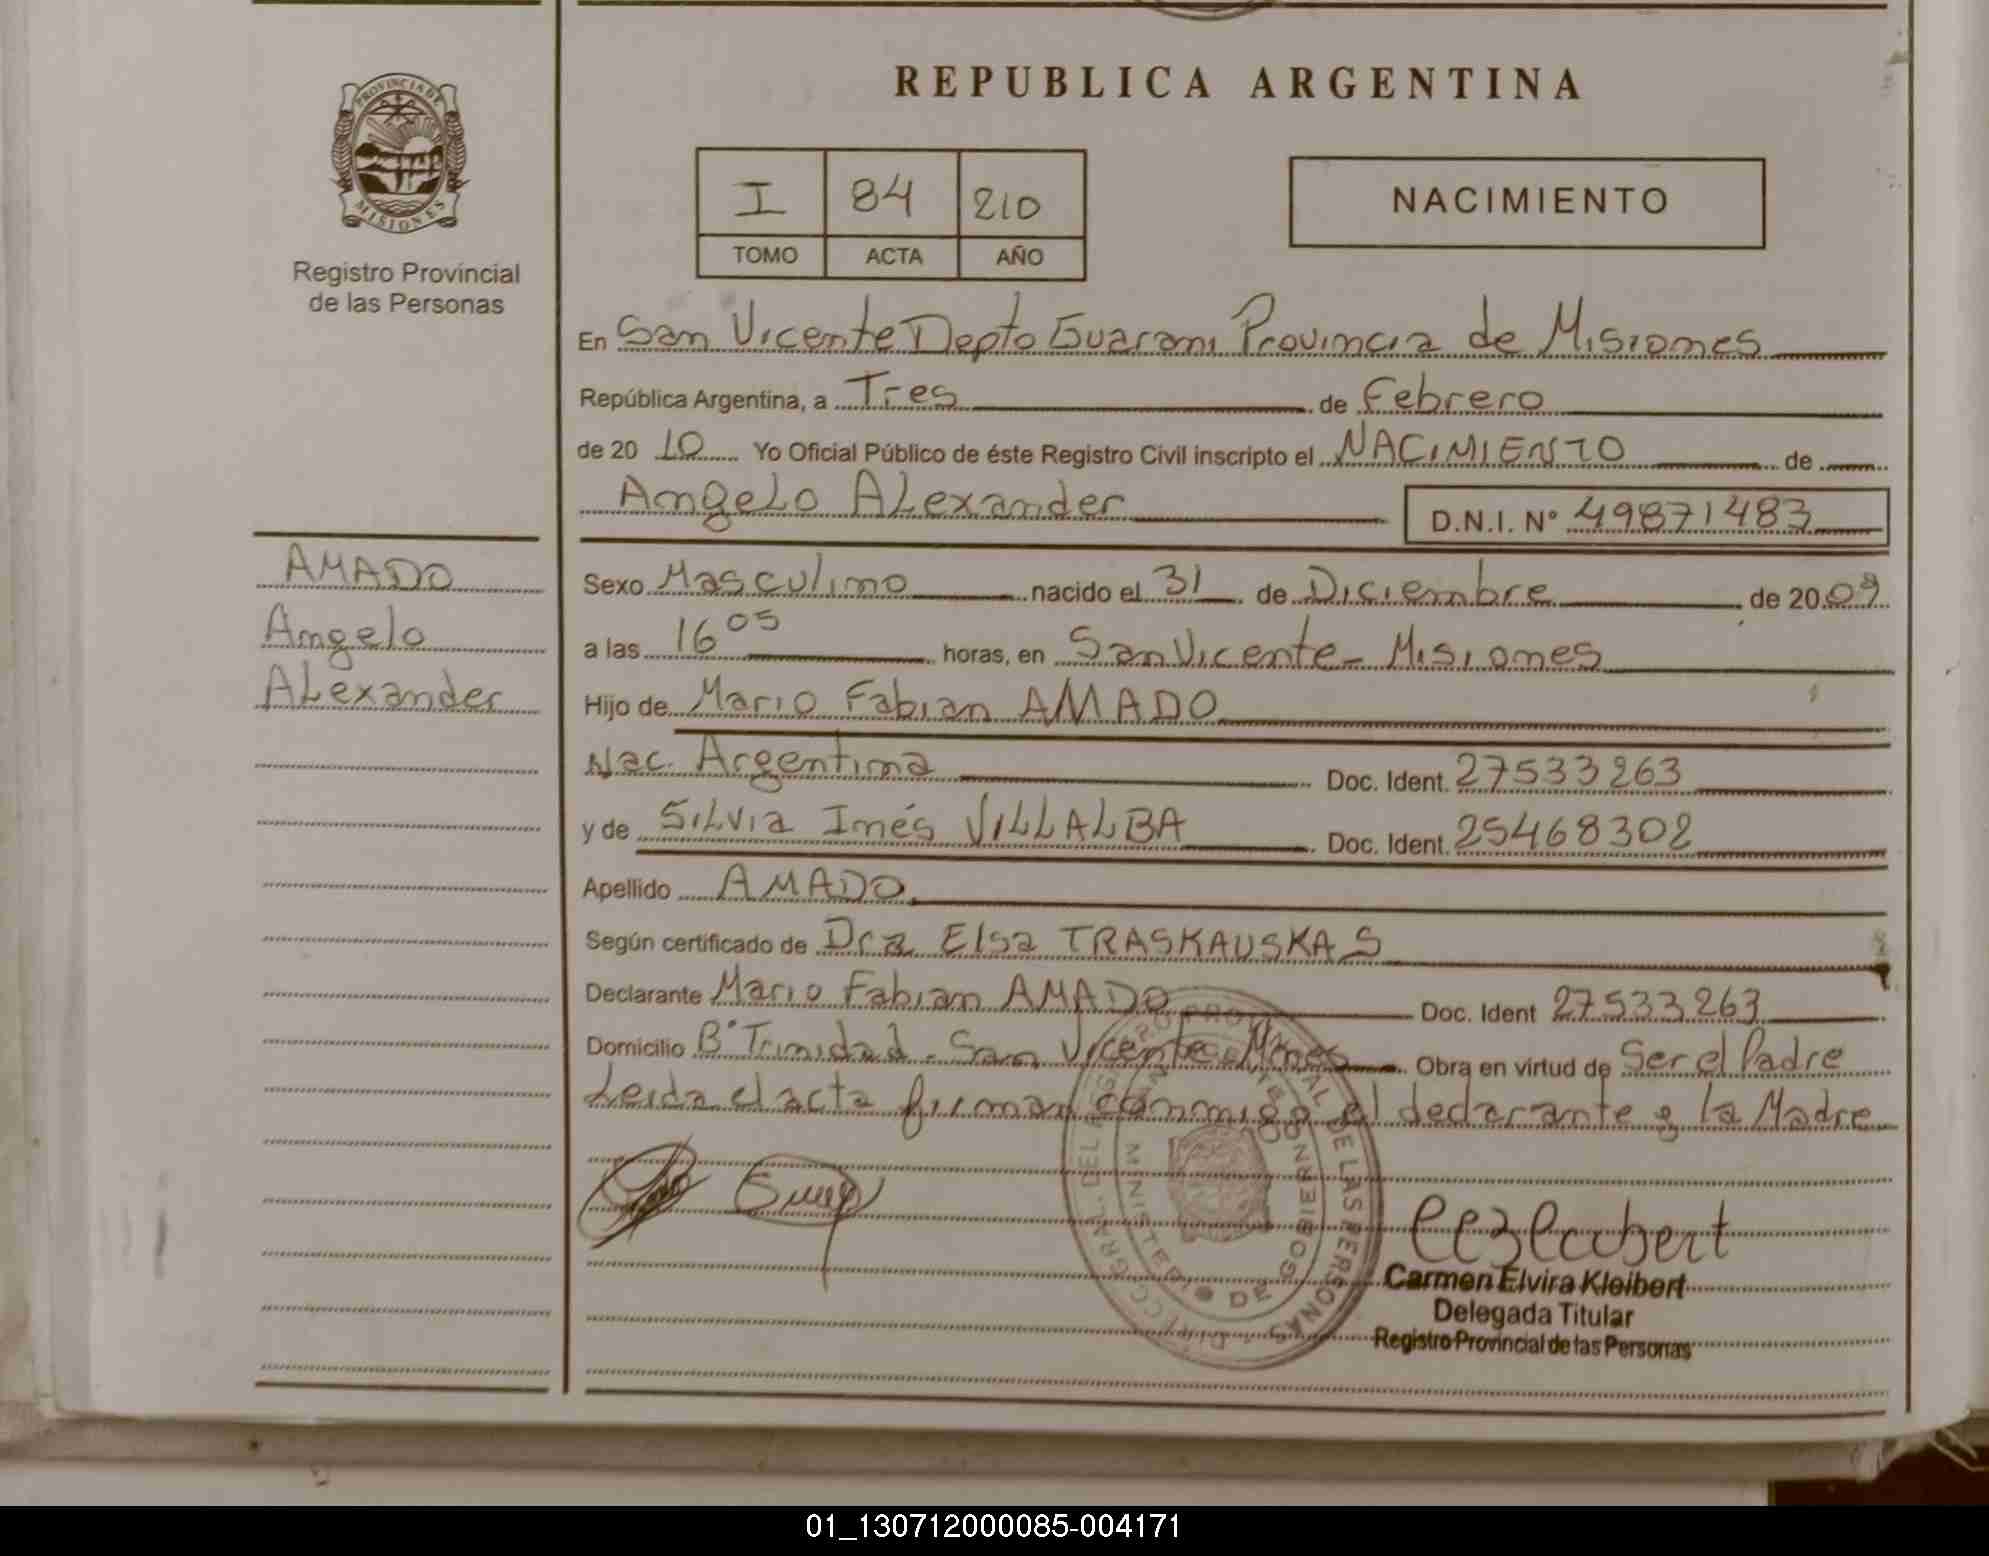 REPUBLICA ARGENTINA
PROVINCIA DE
MISIONES
Registro Provincial
de las Personas
I 84 210
TOMO ACTA AÑO
NACIMIENTO
En San Vicente Depto Guarani Provincia de Misiones
República Argentina, a Tres de Febrero
de 20 10 Yo Oficial Público de éste Registro Civil inscripto el NACIMIENTO de
Angelo ALexander D.N.I. N° 49871483
AMADO
Angelo
ALexander
Sexo Masculino nacido el 31 de Diciembre de 2009
a las 16 05 horas, en San Vicente - Misiones
Hijo de Mario Fabian AMADO
Nac. Argentina Doc. Ident. 27533263
y de SiLvia Inés VILLALBA Doc. Ident. 25468302
Apellido AMADO
Según certificado de Dra Elsa TRASKAUSKAS
Declarante Mario Fabian AMADO Doc. Ident 27533263
Domicilio B° Trinidad - San Vicente - Mnes Obra en virtud de Ser el Padre
Leida el acta firman conmigo el declarante y la Madre
DE GOBIERNO
DE LAS PERSONAS
Carmen Elvira Kleibert
Delegada Titular
Registro Provincial de las Personas
01_130712000085-004171